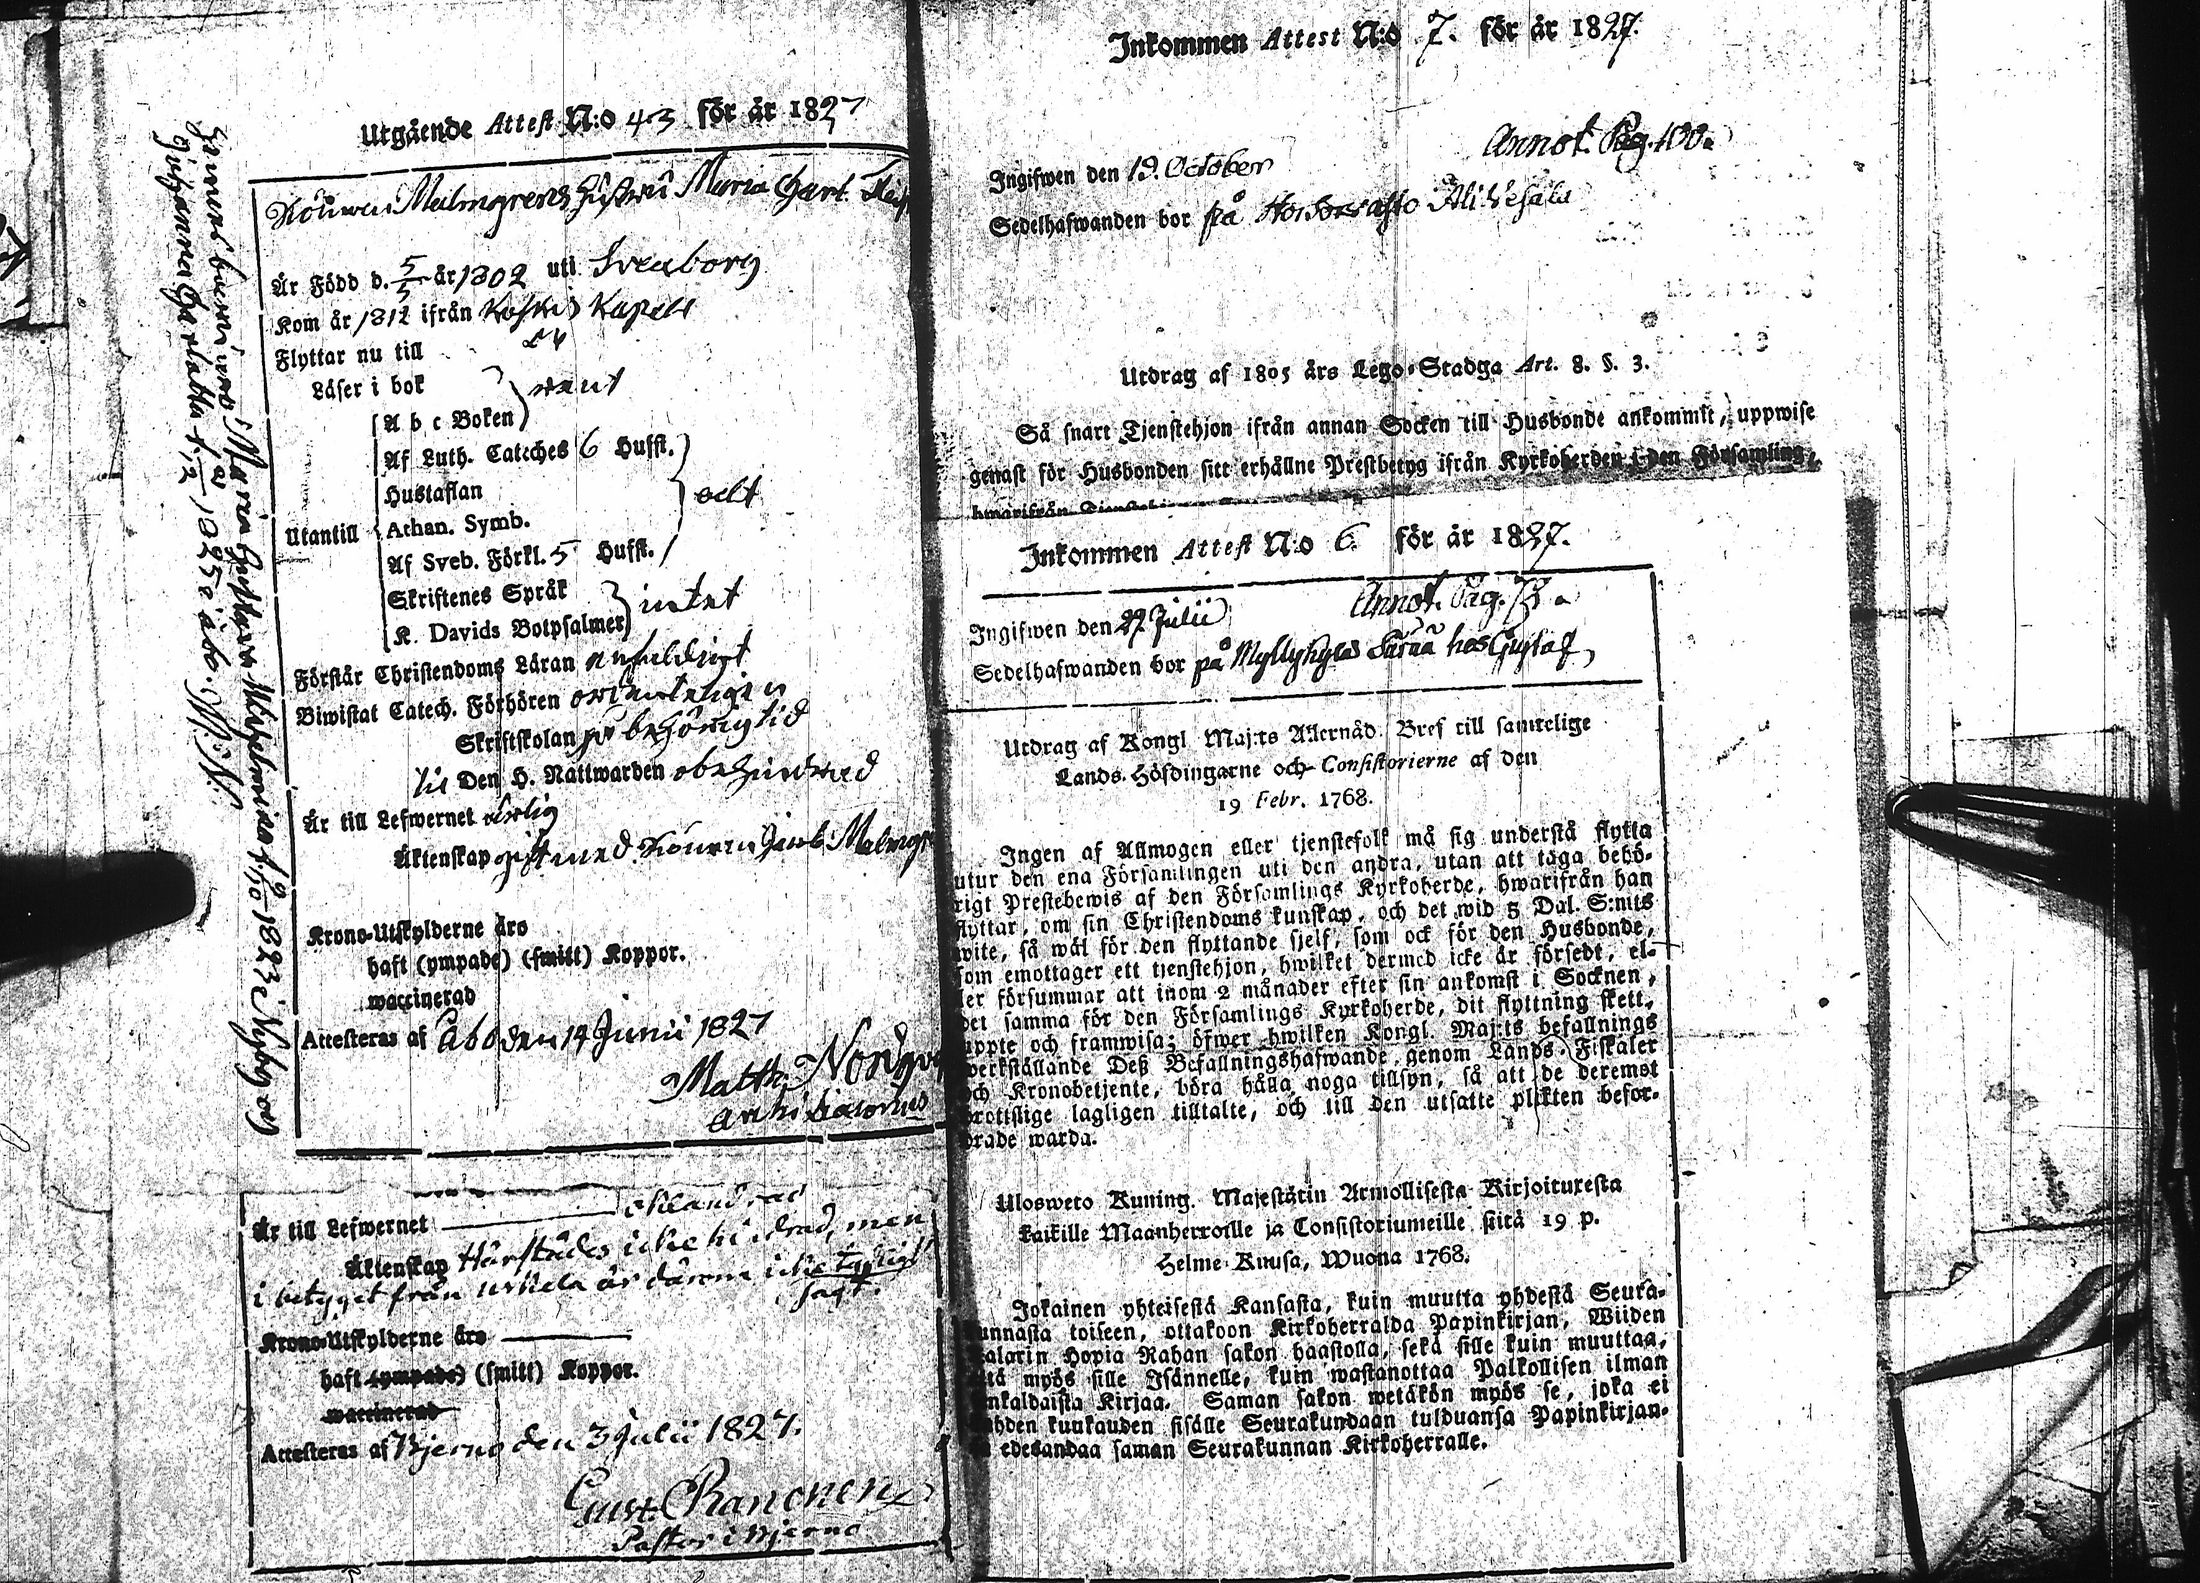 Utgående Attest N:o 43 för år 1827
Malmgrens Hustru Maria Charl.
Är Född d. 5/5 år 1802 uti Sveaborg
Kom år 1812 ifrån Koskis Kapell
Flyttar nu till
Läser i bok
rent
A b c Boken
Af Luth. Cateches 6 Hufst.
Hustaflan
Utantill
Athan. Symb.
Af Sveb. Förkl. 5 Hufst.
Skriftenes Språk
intet
K. Davids Botpsalmer
Förstår Christendoms Läran enfaldigt
Biwistat Catech. Förhören ordentligen
Skriftskolan på behörig tid
till Den H. Nattwarden obehindrad
Är till Lefwernet ärlig
Äktenskap gift med
Krono-Utskylderne äro
haft (ympade) (smitt) Koppor.
waccinerad
Attesteras af Åbo den 14 Junii 1827
Matth.
Archi Diaconus
Maria
Wilhelmina 1823 i Nyby
Johanna Charlotta 1825 i Åbo. M. N.
Är till Lefwernet oklandrad
Äktenskap Härstädes icke hindrad, men
i betyget från är därom icke tydligt
sagt.
Krono-Utskylderne äro
haft (ympade) (smitt) Koppor.
waccinerad
Attesteras af Bjerno den 3 Julii 1827.
Gust. Rancken
Pastor i Bjerno
Inkommen Attest N:o 7. för år 1827.
Annot. Pag. 100.
Ingifwen den 19. October
Sedelhafwanden bor på
Utdrag af 1805 års Lego-Stadga Art. 8. §. 3.
Så snart Tjenstehjon ifrån annan Socken till Husbonde ankommit, uppwise
genast för Husbonden sitt erhållne Prestbetyg ifrån Kyrkoherden i den Församling,
hwarifrån
Inkommen Attest N:o 6. för år 1827.
Annot. Pag.
Ingifwen den 27 Julii
Sedelhafwanden bor på Myllykylä hos Gustaf
Utdrag af Kongl. Maj:ts Allernåd. Bref till samtelige
Lands-Höfdingarne och Consistorierne af den
19 Febr. 1768.
Ingen af Allmogen eller tjenstefolk må sig understå flytta
utur den ena Församlingen uti den andra, utan att taga behö-
rigt Prestebewis af den Församlings Kyrkoherde, hwarifrån han
flyttar, om sin Christendoms kunskap, och det wid 5 Dal. S:mts
wite, så wäl för den flyttande sjelf, som ock för den Husbonde,
som emottager ett tjenstehjon, hwilket dermed icke är försedt, el-
ler försummar att inom 2 månader efter sin ankomst i Socknen,
det samma för den Församlings Kyrkoherde, dit flyttning skett,
uppte och framwisa; öfwer hwilken Kongl. Maj:ts befallnings
werkställande Deß Befallningshafwande, genom Lands-Fiskaler
och Kronobetjente, böra hålla noga tillsyn, så att de deremot
brottslige lagligen tilltalte, och till den utsatte plikten befor-
drade warda.
Ulosweto Kuning. Majestätin Armollisesta Kirjoituxesta
kaikille Maanherroille ja Consistoriumeille siitä 19 p.
Helme-Kuusa, Wuona 1768.
Jokainen yhteisestä Kansasta, kuin muutta yhdestä Seura-
kunnasta toiseen, ottakoon Kirkoherralda Papinkirjan, Wiiden
talarin Hopia Rahan sakon haastolla, sekä sille kuin muuttaa,
että myös sille Isännelle, kuin wastanottaa Palkollisen ilman
senkaldaista Kirjaa. Saman sakon wetäkön myös se, joka ei
kahden kuukauden sisälle Seurakundaan tulduansa Papinkirjan-
sa edesandaa saman Seurakunnan Kirkoherralle.